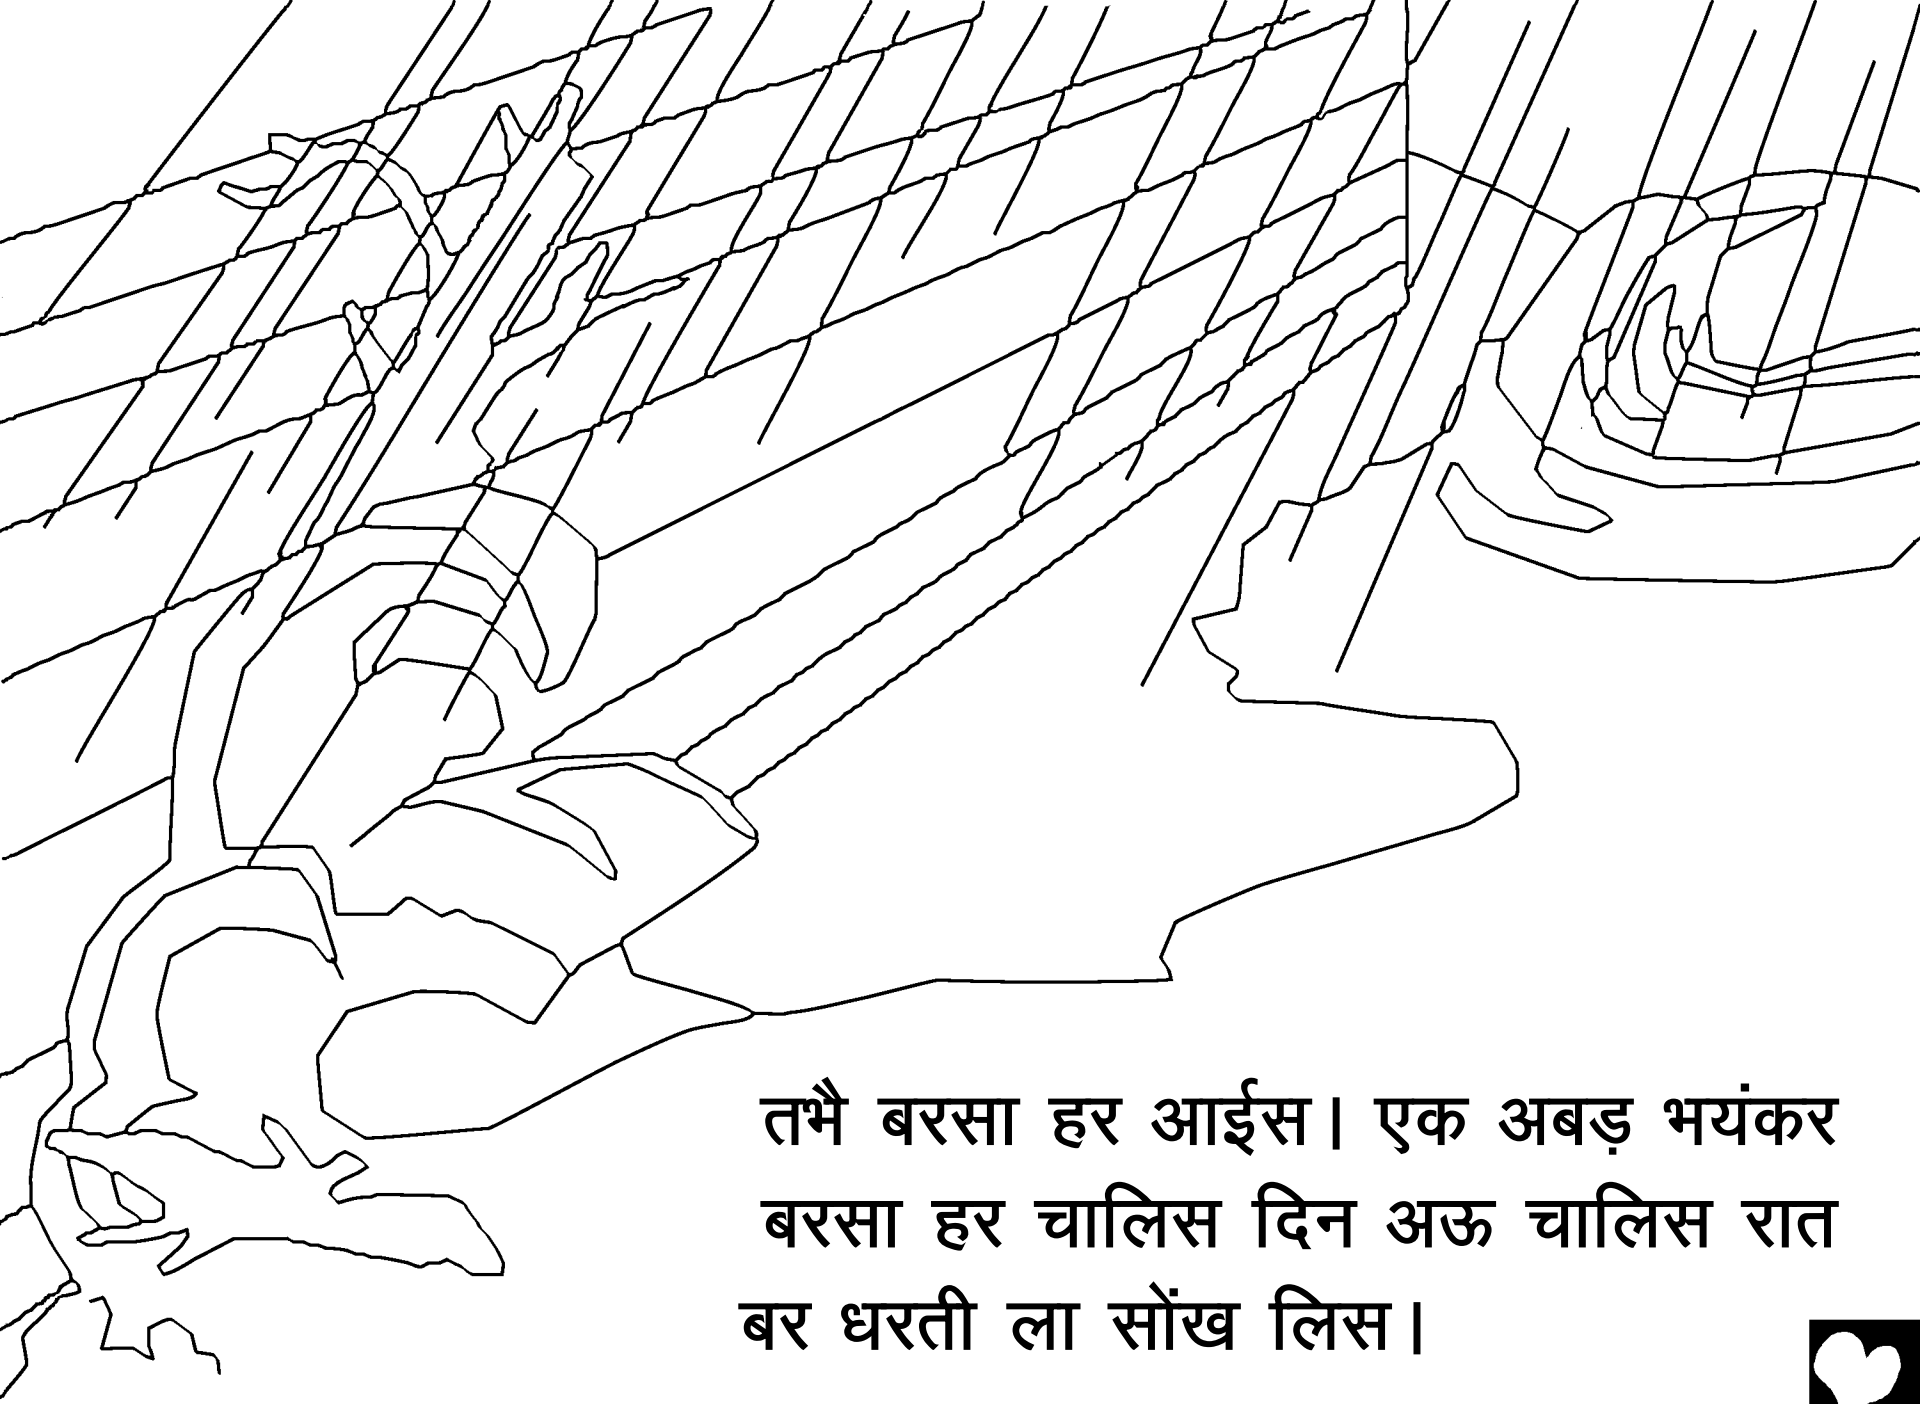 तभै बरसा हर आईस। एक अबड़ भयंकर
बरसा हर चालिस दिन अऊ चालिस रात
बर धरती ला सोंख लिस।